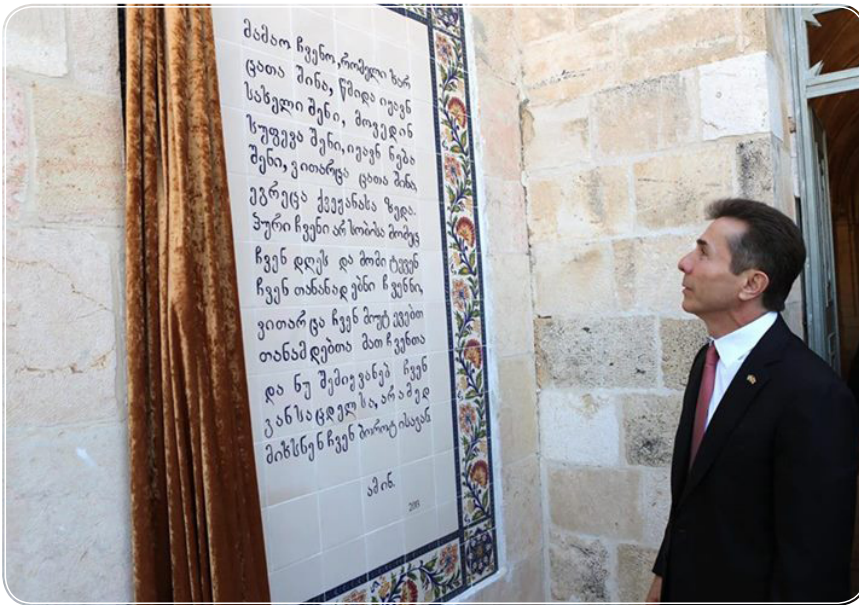 მამაო ჩვენო, რომელი ხარ
ცათა შინა, წმიდა იყავნ
სახელი შენი, მოვედინ
სუფევა შენი, იყავნ ნება
შენი, ვითარცა ცათა შინა,
ეგრეცა ქვეყანასა ზედა.
პური ჩვენი არსობისა მომეც
ჩვენ დღეს და მომიტევენ
ჩვენ თანანადებნი ჩვენნი,
ვითარცა ჩვენ მიუტევებთ
თანამდებთა მათ ჩვენთა
და ნუ შემიყვანებ ჩვენ
განსაცდელსა, არამედ
მიხსნენ ჩვენ ბოროტისაგან.
ამინ.